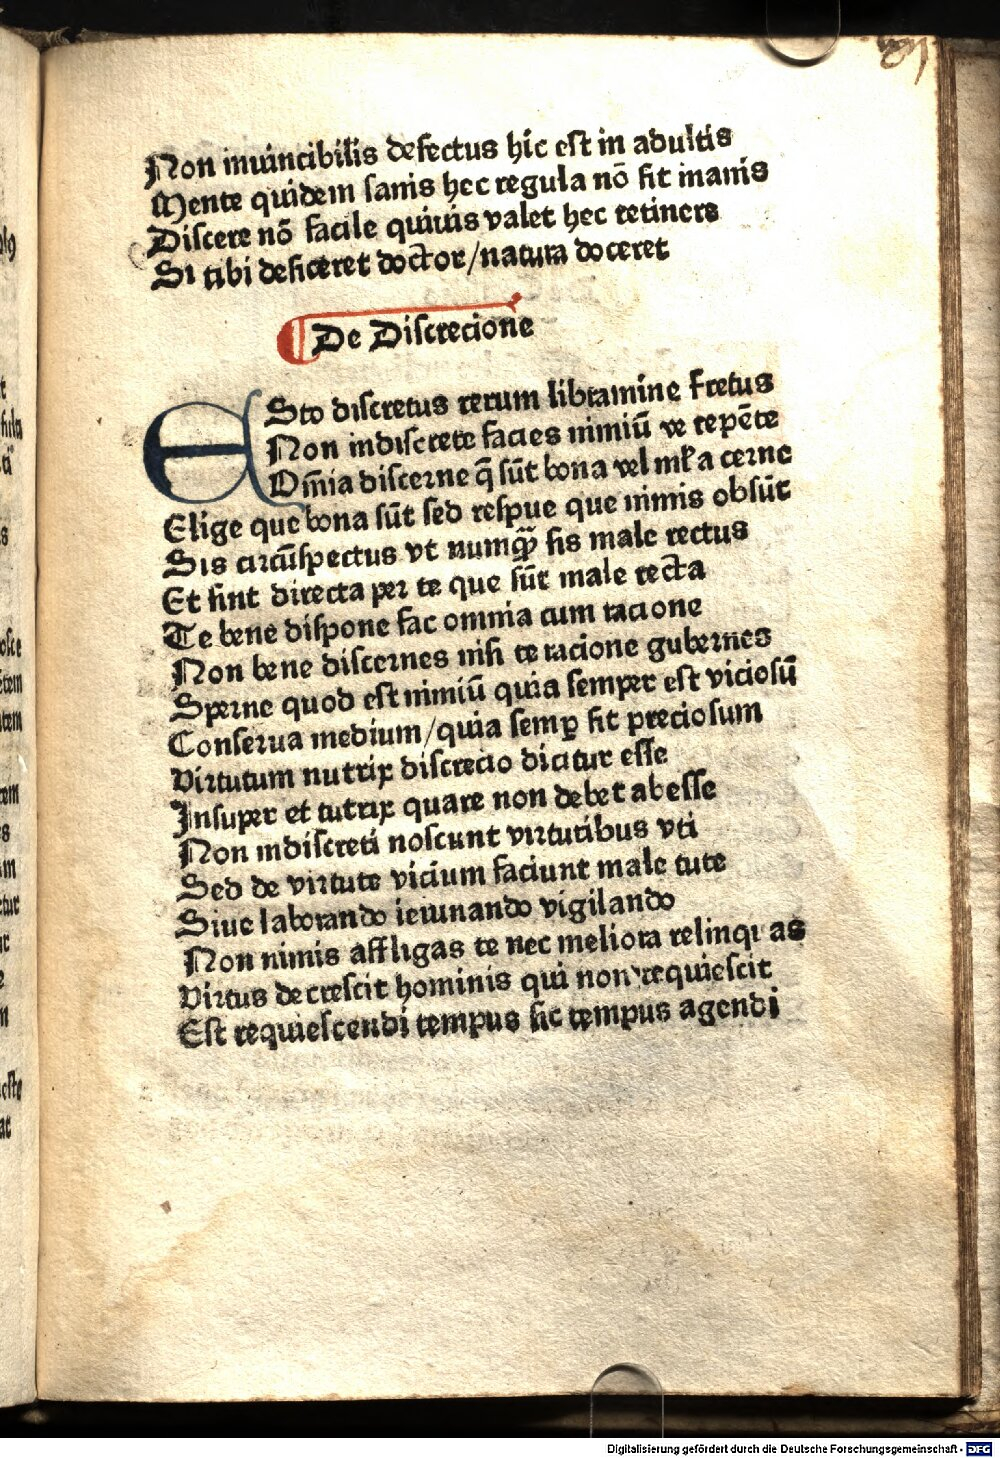 Non inuincibilis defectus hic est in adultis
Mente quidem sanis hec regula nō sit inanis
Discere nō facile quiuis valet hec retinere
Si tibi deficeret doctor/natura doceret
De Discrecione
ESto discretus rerum libramine fretus
Non indiscrete facies nimiū ve repēte
Om̄ia discerne q̄ sūt bona vel mala cerne
Elige que bona sūt sed respue que nimis obsūt
Sis circūspectus vt numqȝ sis male rectus
Et sint directa per te que sūt male recta
Te bene dispone fac omnia cum racione
Non bene discernes nisi te racione gubernes
Sperne quod est nimiū quia semper est viciosū
Conserua medium/quia semꝑ sit preciosum
Virtutum nutrix discrecio dicitur esse
Insuper et tutrix quare non debet abesse
Non indiscreti noscunt virtutibus vti
Sed de virtute vicium faciunt male tute
Siue laborando ieiunando vigilando
Non nimis affligas te nec meliora relinquas
Virtus decrescit hominis qui non requiescit
Est requiescendi tempus sic tempus agendi
Digitalisierung gefördert durch die Deutsche Forschungsgemeinschaft - DFG